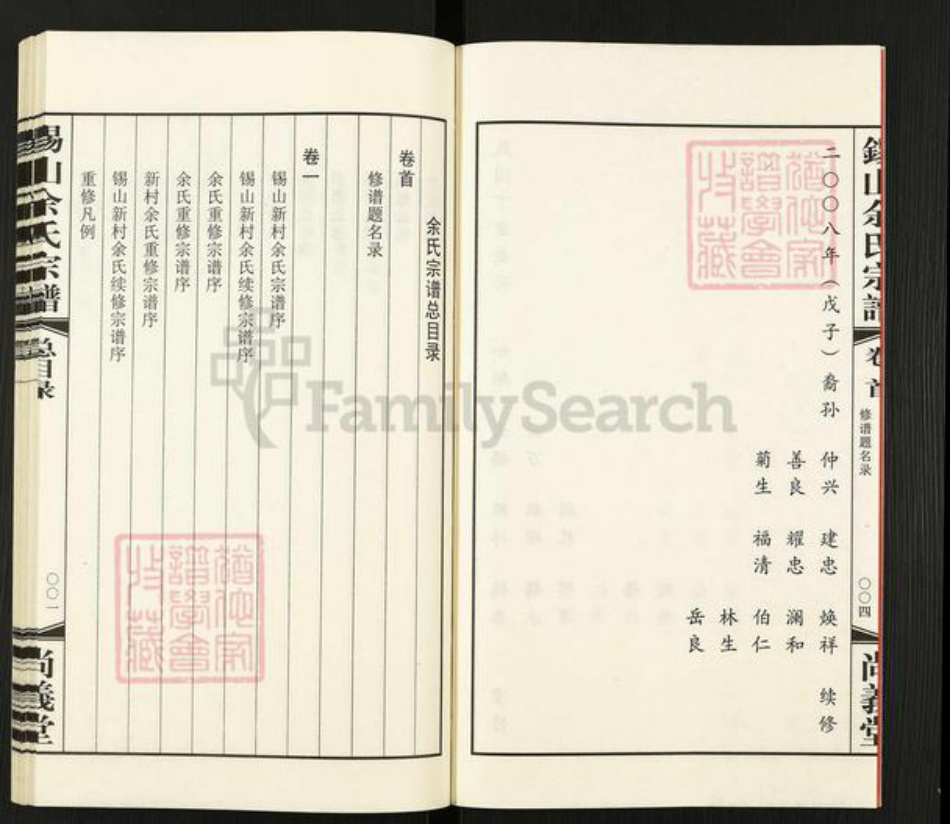 錫山余氏宗譜
卷首
修谱题名录
〇〇四
尚義堂
二〇〇八年（戊子）裔孙 仲兴 建忠 焕祥 续修
善良 耀忠 澜和
菊生 福清 伯仁
林生
岳良
余氏宗谱总目录
卷首
修谱题名录
卷一
锡山新村余氏宗谱序
锡山新村余氏续修宗谱序
余氏重修宗谱序
余氏重修宗谱序
新村余氏重修宗谱序
锡山新村余氏续修宗谱序
重修凡例
锡山余氏宗谱
总目录
〇〇一
尚義堂
猶他家譜學會收藏
猶他家譜學會收藏
FamilySearch